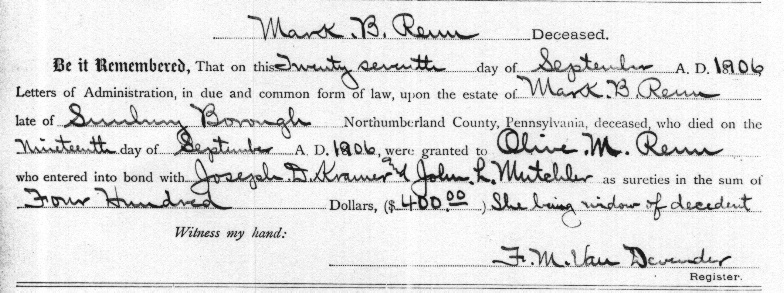 Mark. B. Renn Deceased.
Be it Remembered, That on this Twenty seventh day of September A. D. 1906,
Letters of Administration, in due and common form of law, upon the estate of Mark. B. Renn
late of Sunbury Borough Northumberland County, Pennsylvania, deceased, who died on the
Nineteenth day of September A. D. 1906, were granted to Olive. M. Renn
who entered into bond with Joseph. D. Kramer and John. L. Mutchler as sureties in the sum of
Four Hundred Dollars, ($ 400.00 ) She being widow of decedent
Witness my hand:
F. M. Van Devender
Register.